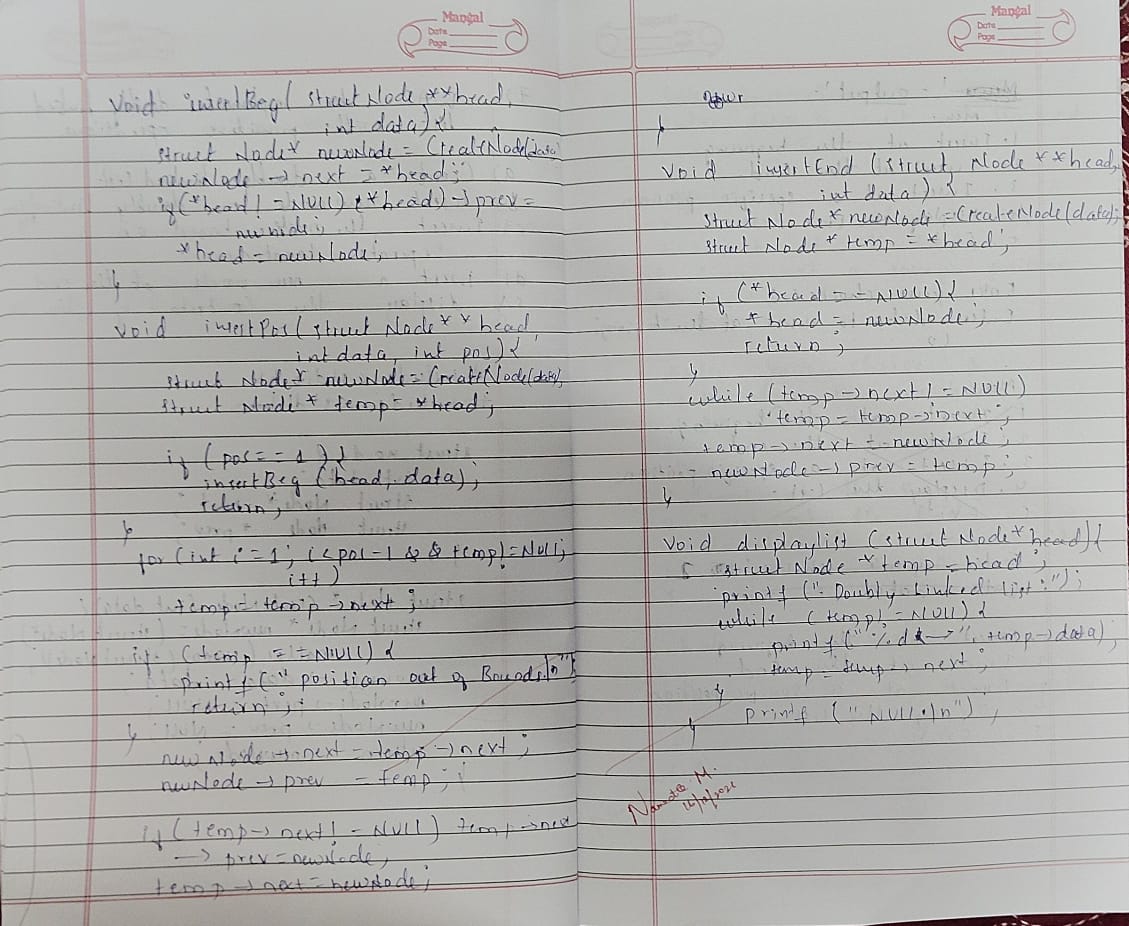 Mangal
Date
Page
void insertBeg( struct Node **head,
int data) {
struct Node* newNode = CreateNode(data
newNode → next = *head;
if(*head != NULL) (*head) → prev =
newnode;
*head = newNode;
}
void insertPos( struct Node** head,
int data, int pos) {
struct Node* newNode = CreateNode(data),
struct Node * temp = *head;
if (pos == 1) {
insertBeg (head, data);
return;
}
for (int i = 1; i < pos - 1 && temp != NULL;
i++)
temp = temp → next ;
if (temp == NULL) {
printf (" position out of Bounds.\n");
return ;
}
newNode → next = temp → next ;
newNode → prev = temp ;
if (temp → next != NULL) temp → next
→ prev = newNode,
temp → next = newNode;
Mangal
Date
Page
}
void insertEnd (struct Node **head,
int data) {
struct Node * newNode = CreateNode(data);
struct Node * temp = *head;
if (*head == NULL) {
*head = newNode;
return ;
}
while (temp → next != NULL)
temp = temp → next ;
temp → next = newNode ;
newNode → prev = temp ;
}
void displaylist (struct Node* head) {
struct Node * temp = head ;
printf (" Doubly Linked list :");
while (temp != NULL) {
printf (" %d → ", temp → data),
temp = temp → next ;
}
printf (" NULL \n") ;
}
Namrata M.